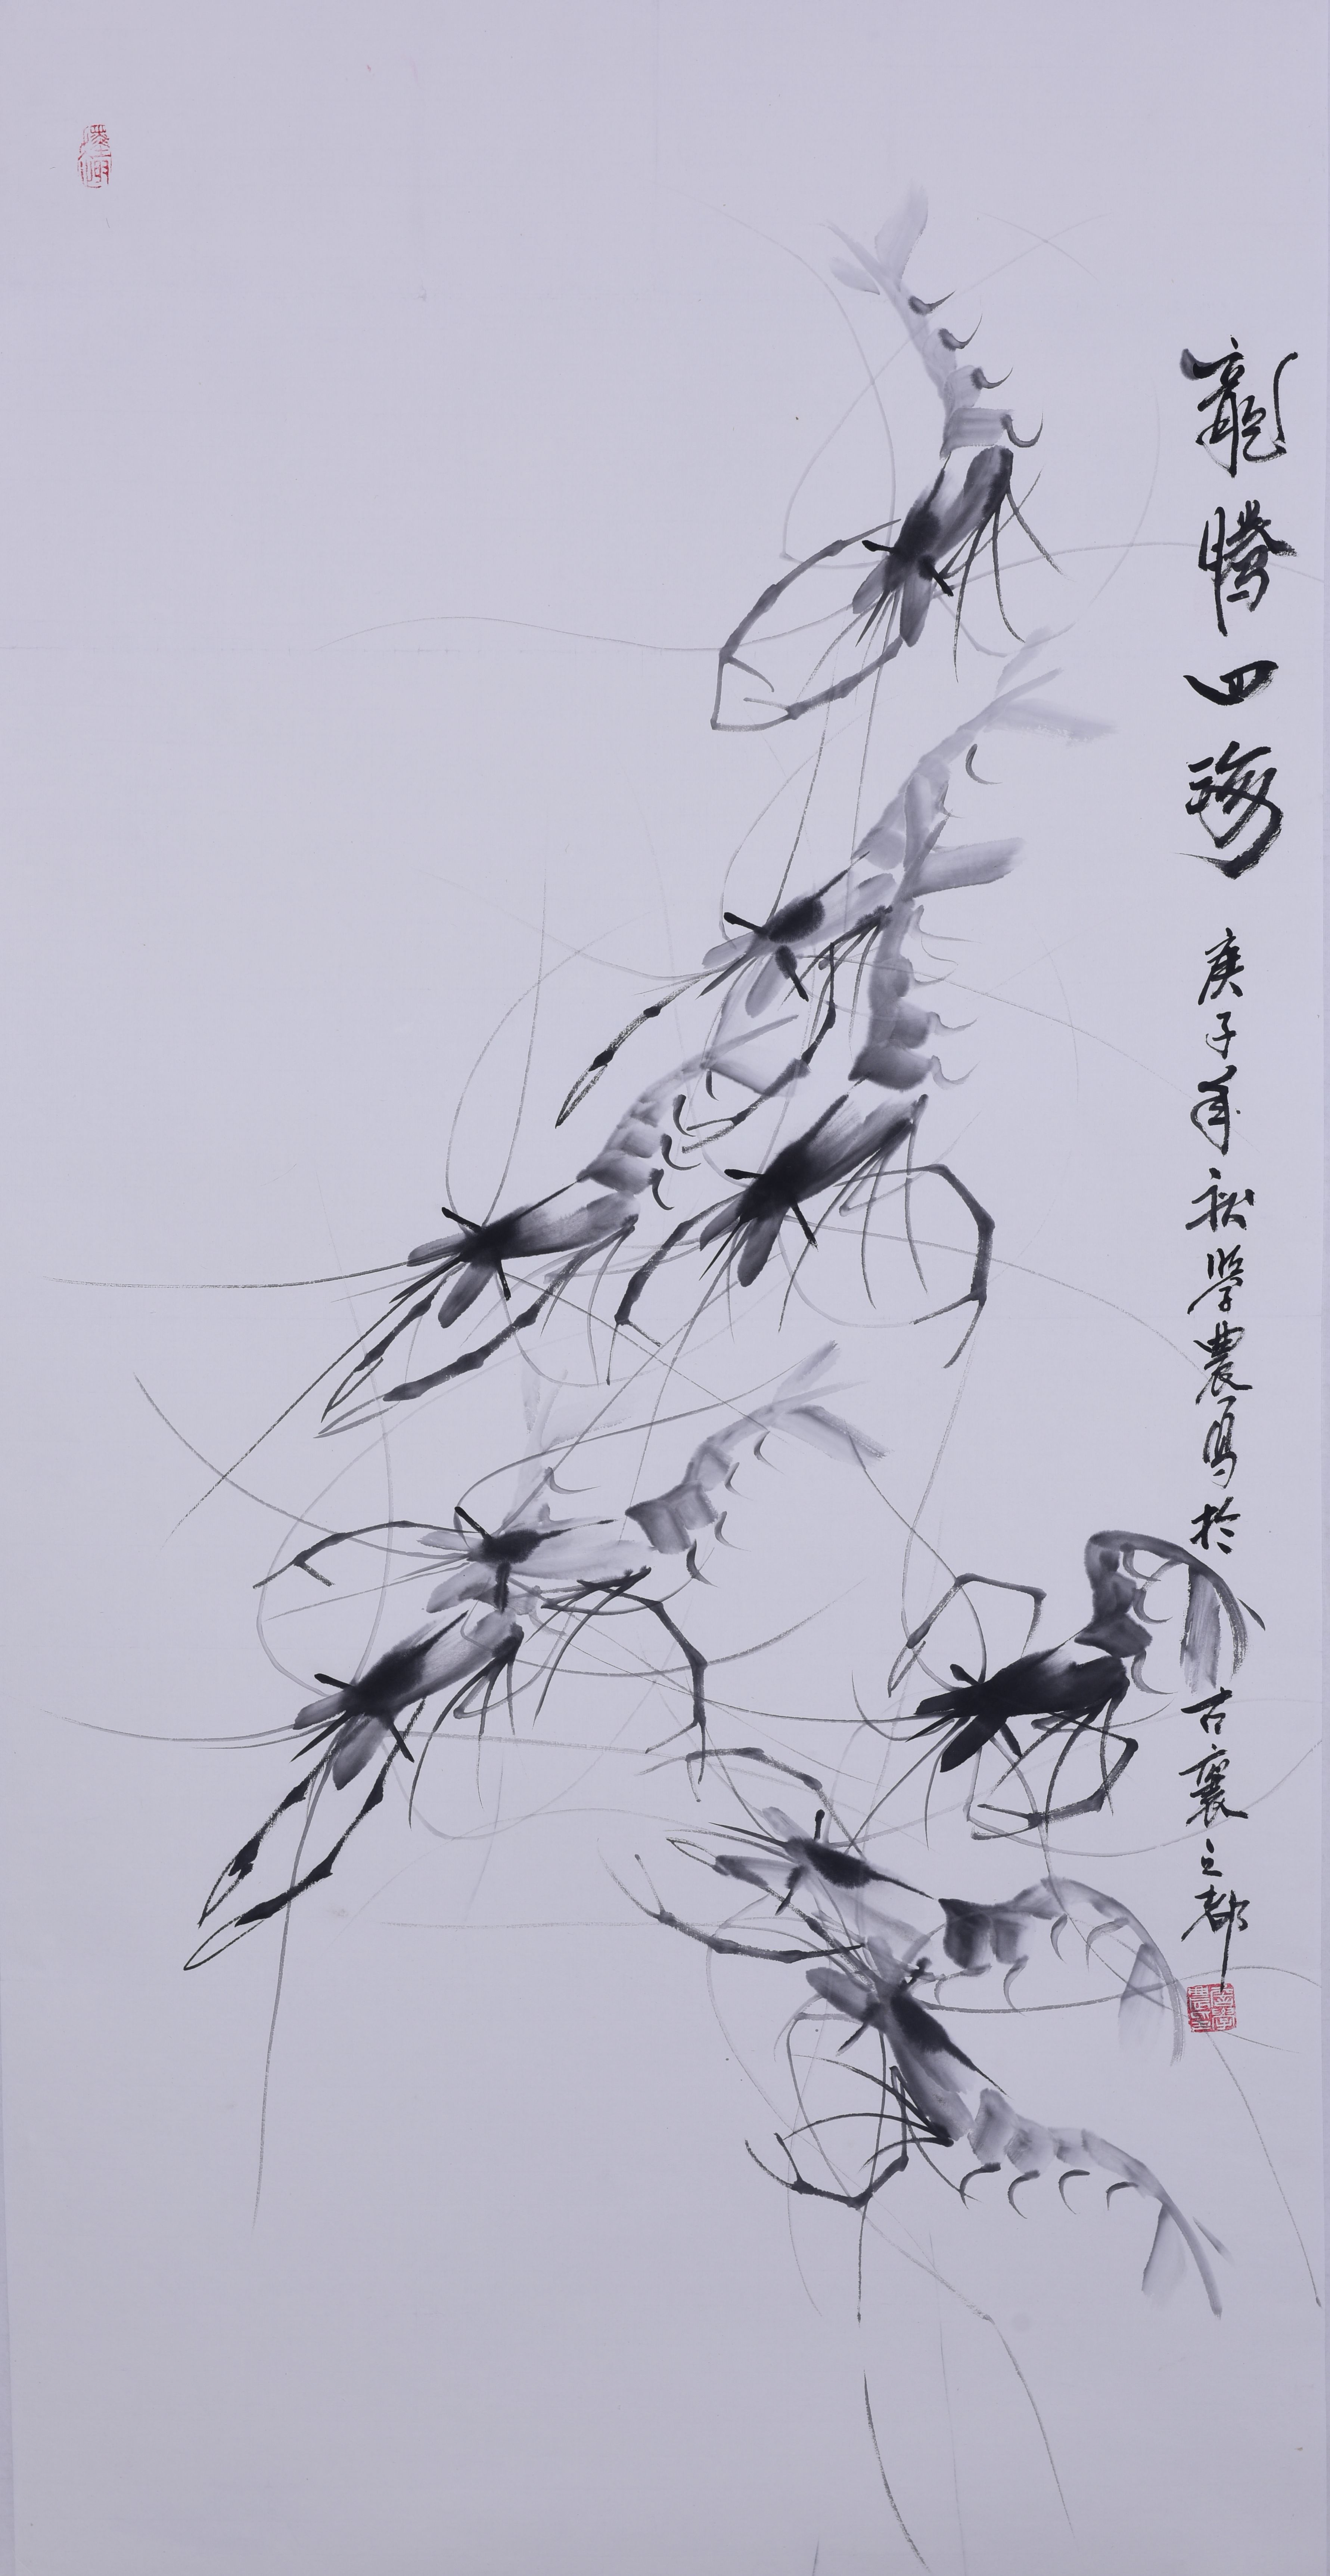 龍騰四海 庚子年秋學農寫於古襄之都